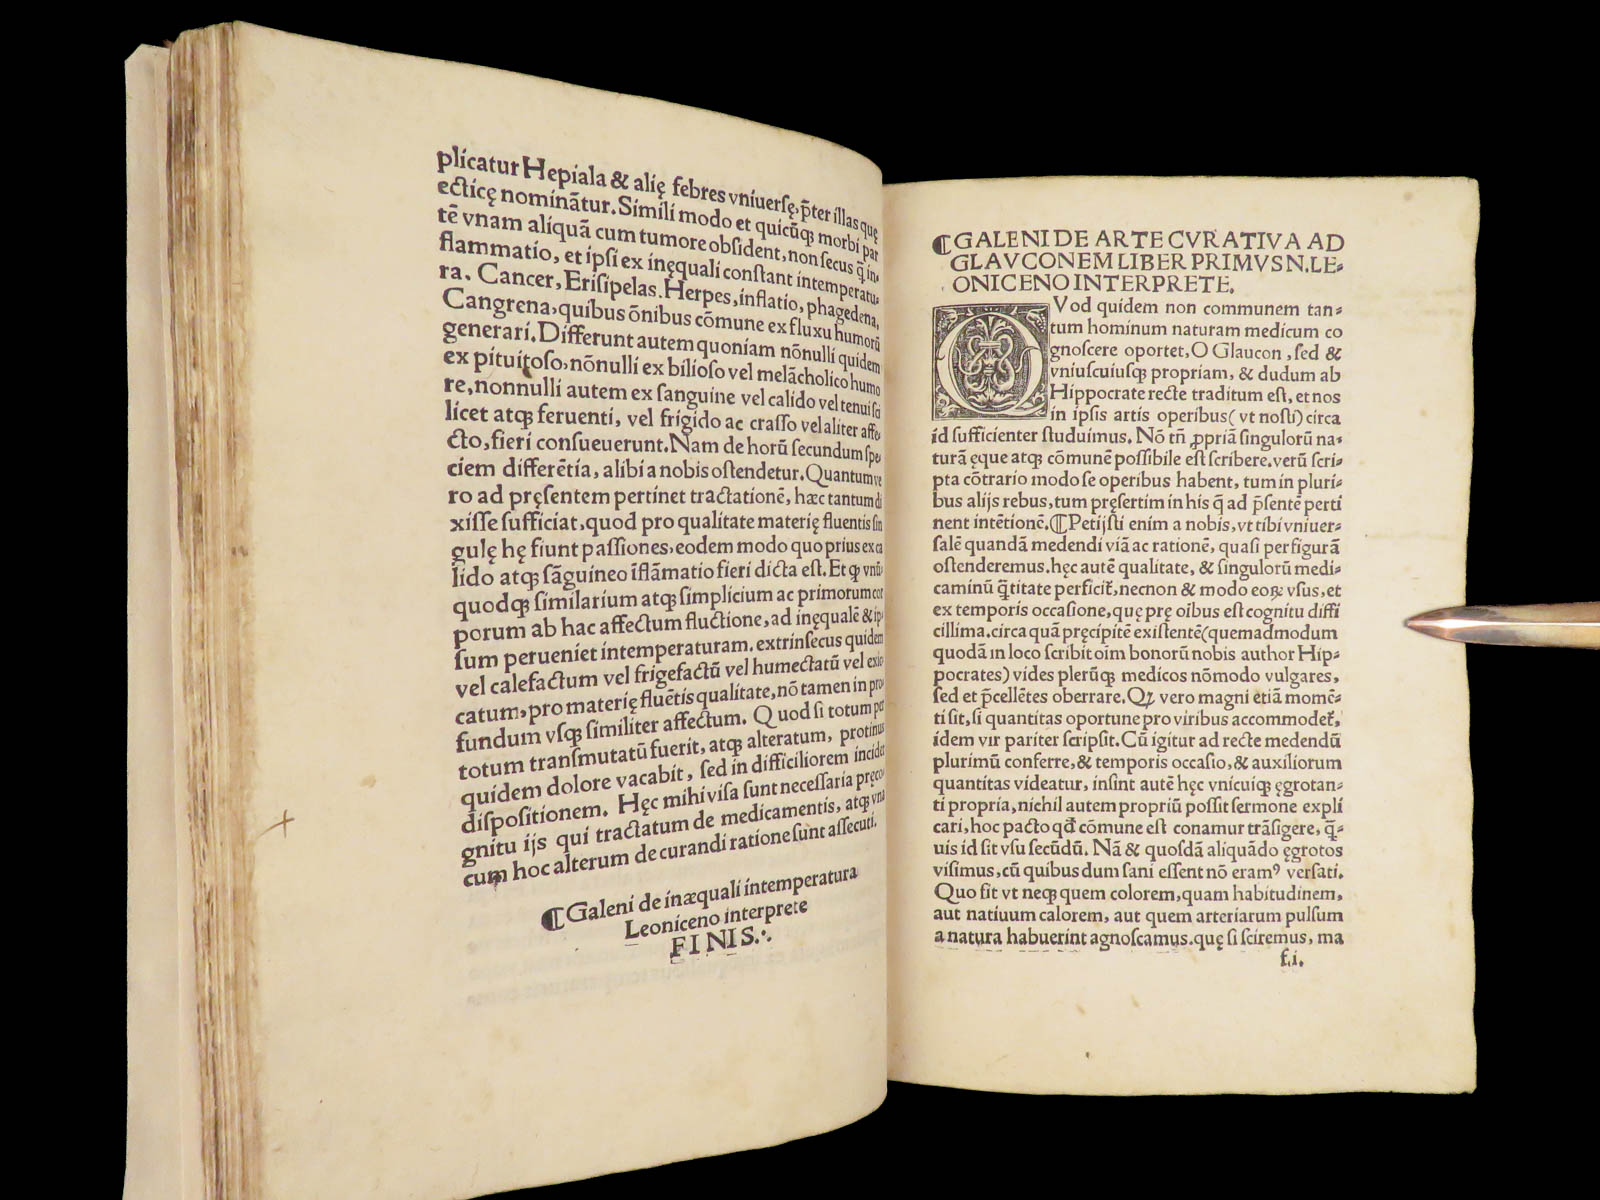 plicatur Hepiala & alię febres vniuersę, p̄ter illas quę
ecticę nominātur. Simili modo et quicūqꝫ morbi par
tē vnam aliquā cum tumore obsident, non secus q̄ in-
flammatio, et ipsi ex inęquali constant intemperatu-
ra. Cancer, Erisipelas. Herpes, inflatio, phagedena,
Cangrena, quibus ōnibus cōmune ex fluxu humorū
generari. Differunt autem quoniam nōnulli quidem
ex pituitoso, nōnulli ex bilioso vel melācholico humo
re, nonnulli autem ex sanguine vel calido vel tenui sci
licet atqꝫ feruenti, vel frigido ac crasso vel aliter affe
cto, fieri consueuerunt. Nam de horū secundum spe
ciem differētia, alibi a nobis ostendetur. Quantum ve
ro ad pręsentem pertinet tractationē, hæc tantum di
xisse sufficiat, quod pro qualitate materię fluentis sin
gulę hę fiunt passiones, eodem modo quo prius ex ca
lido atqꝫ sāguineo īflāmatio fieri dicta est. Et qꝫ vnū
quodqꝫ similarium atqꝫ simplicium ac primorum cor
porum ab hac affectum fluctione, ad inęqualē & ip-
sum perueniet intemperaturam. extrinsecus quidem
vel calefactum vel frigefactū vel humectatū vel exic
catum, pro materię fluētis qualitate, nō tamen in pro
fundum vsqꝫ similiter affectum. Quod si totum per
totum transmutatū fuerit, atqꝫ alteratum, protinus
quidem dolore vacabit, sed in difficiliorem incidet
dispositionem. Hęc mihi visa sunt necessaria pręco
gnitu ijs qui tractatum de medicamentis, atqꝫ vna
cum hoc alterum de curandi ratione sunt assecuti.
¶ Galeni de inæquali intemperatura
Leoniceno interprete
FINIS.·.
¶ GALENI DE ARTE CVRATIVA AD
GLAVCONEM LIBER PRIMVS N. LE-
ONICENO INTERPRETE.
QVod quidem non communem tan-
tum hominum naturam medicum co
gnoscere oportet, O Glaucon, sed &
vniuscuiusqꝫ propriam, & dudum ab
Hippocrate recte traditum est, et nos
in ipsis artis operibus (vt nosti) circa
id sufficienter studuimus. Nō tñ ꝓpriā singulorū na-
turā ęque atqꝫ cōmunē possibile est scribere. verū scri-
pta cōtrario modo se operibus habent, tum in pluri-
bus alijs rebus, tum pręsertim in his q̄ ad p̄sentē perti
nent intētionē. ¶ Petijsti enim a nobis, vt tibi vniuer-
salē quandā medendi viā ac rationē, quasi per figurā
ostenderemus. hęc autē qualitate, & singulorū medi-
caminū q̄titate perficit̄, necnon & modo eoꝝ vsus, et
ex temporis occasione, quę prę oibus est cognitu diffi
cillima. circa quā pręcipitē existentē (quemadmodum
quodā in loco scribit oīm bonorū nobis author Hip-
pocrates) vides plerūqꝫ medicos nōmodo vulgares,
sed et p̄cellētes oberrare. Qꝫ vero magni etiā momē-
ti sit, si quantitas oportune pro viribus accommodet̄,
idem vir pariter scripsit. Cū igitur ad recte medendū
plurimū conferre, & temporis occasio, & auxiliorum
quantitas videatur, insint autē hęc vnicuiqꝫ ęgrotan-
ti propria, nichil autem propriū possit sermone expli
cari, hoc pacto qđ cōmune est conamur trāsigere, q̄-
uis id sit vsu secūdū. Nā & quosdā aliquādo ęgrotos
visimus, cū quibus dum sani essent nō eramꝰ versati.
Quo fit vt neqꝫ quem colorem, quam habitudinem,
aut natiuum calorem, aut quem arteriarum pulsum
a natura habuerint agnoscamus. quę si sciremus, ma
f.i.